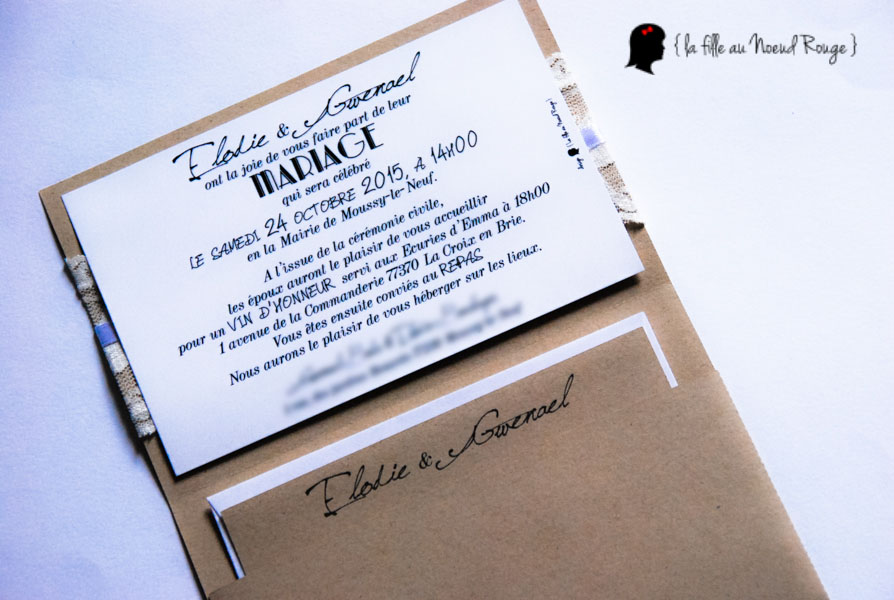 { la fille au Noeud Rouge }
Elodie & Gwenael
ont la joie de vous faire part de leur
MARIAGE
qui sera célébré
LE SAMEDI 24 OCTOBRE 2015, A 14H00
en la Mairie de Moussy-le-Neuf.
A l'issue de la cérémonie civile,
les époux auront le plaisir de vous accueillir
pour un VIN D'HONNEUR servi aux Ecuries d'Emma à 18h00
1 avenue de la Commanderie 77370 La Croix en Brie.
Vous êtes ensuite conviés au REPAS
Nous aurons le plaisir de vous héberger sur les lieux.
Elodie & Gwenael